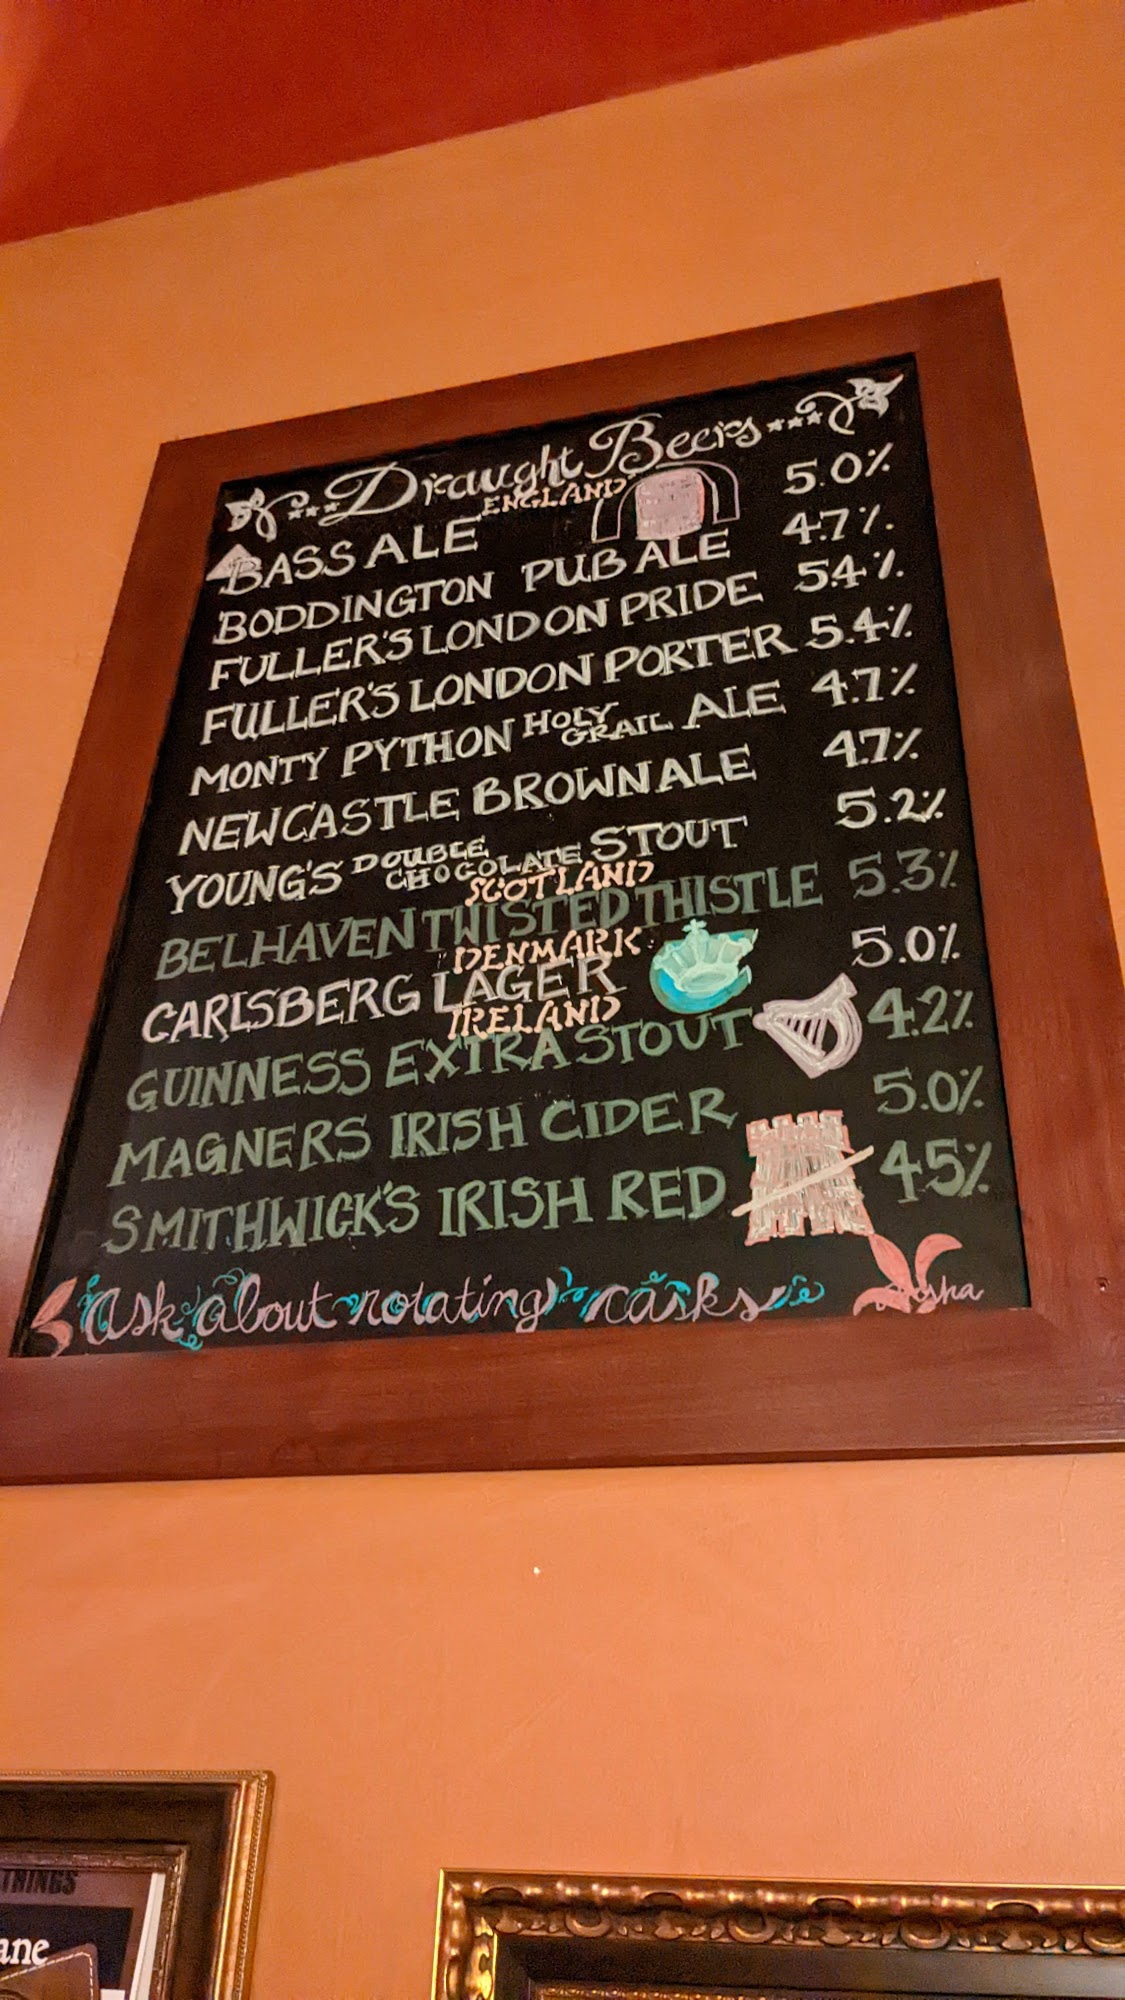 Draught Beers
ENGLAND
BASS ALE 5.0%
BODDINGTON PUB ALE 4.7%
FULLER'S LONDON PRIDE 5.4%
FULLER'S LONDON PORTER 5.4%
MONTY PYTHON HOLY GRAIL ALE 4.7%
NEWCASTLE BROWN ALE 4.7%
YOUNG'S DOUBLE CHOCOLATE STOUT 5.2%
SCOTLAND
BELHAVEN TWISTED THISTLE 5.3%
DENMARK
CARLSBERG LAGER 5.0%
IRELAND
GUINNESS EXTRA STOUT 4.2%
MAGNERS IRISH CIDER 5.0%
SMITHWICK'S IRISH RED 4.5%
Ask about rotating casks
THINGS
ane